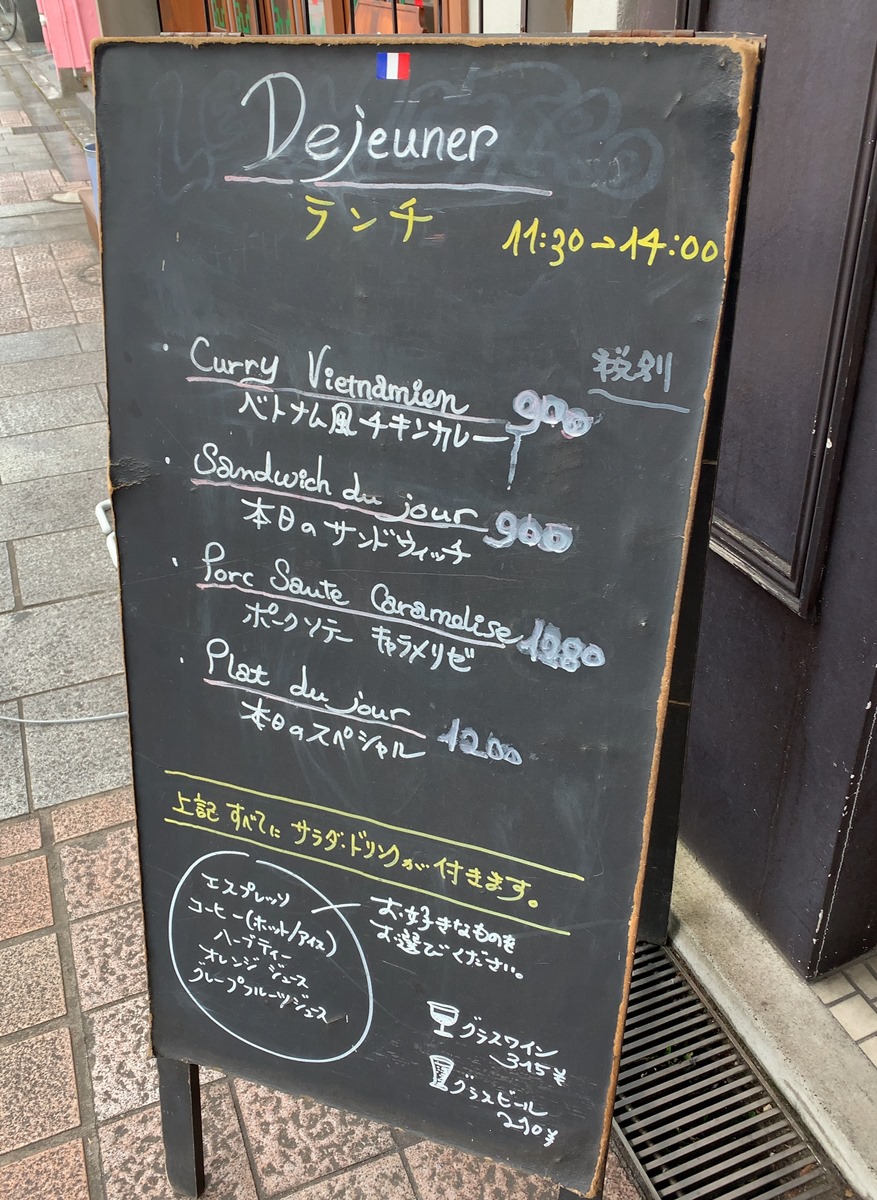 Dejeuner
ランチ
11:30→14:00
税別
・Curry Vietnamien 900
ベトナム風チキンカレー
・Sandwich du jour 900
本日のサンドウィッチ
・Porc Saute Caramelise 1280
ポークソテー キャラメリゼ
・Plat du jour 1200
本日のスペシャル
上記すべてにサラダ・ドリンクが付きます。
エスプレッソ
コーヒー(ホット/アイス)
ハーブティー
オレンジジュース
グループフルーツジュース
お好きなものを
お選びください。
グラスワイン
315¥
グラスビール
210¥